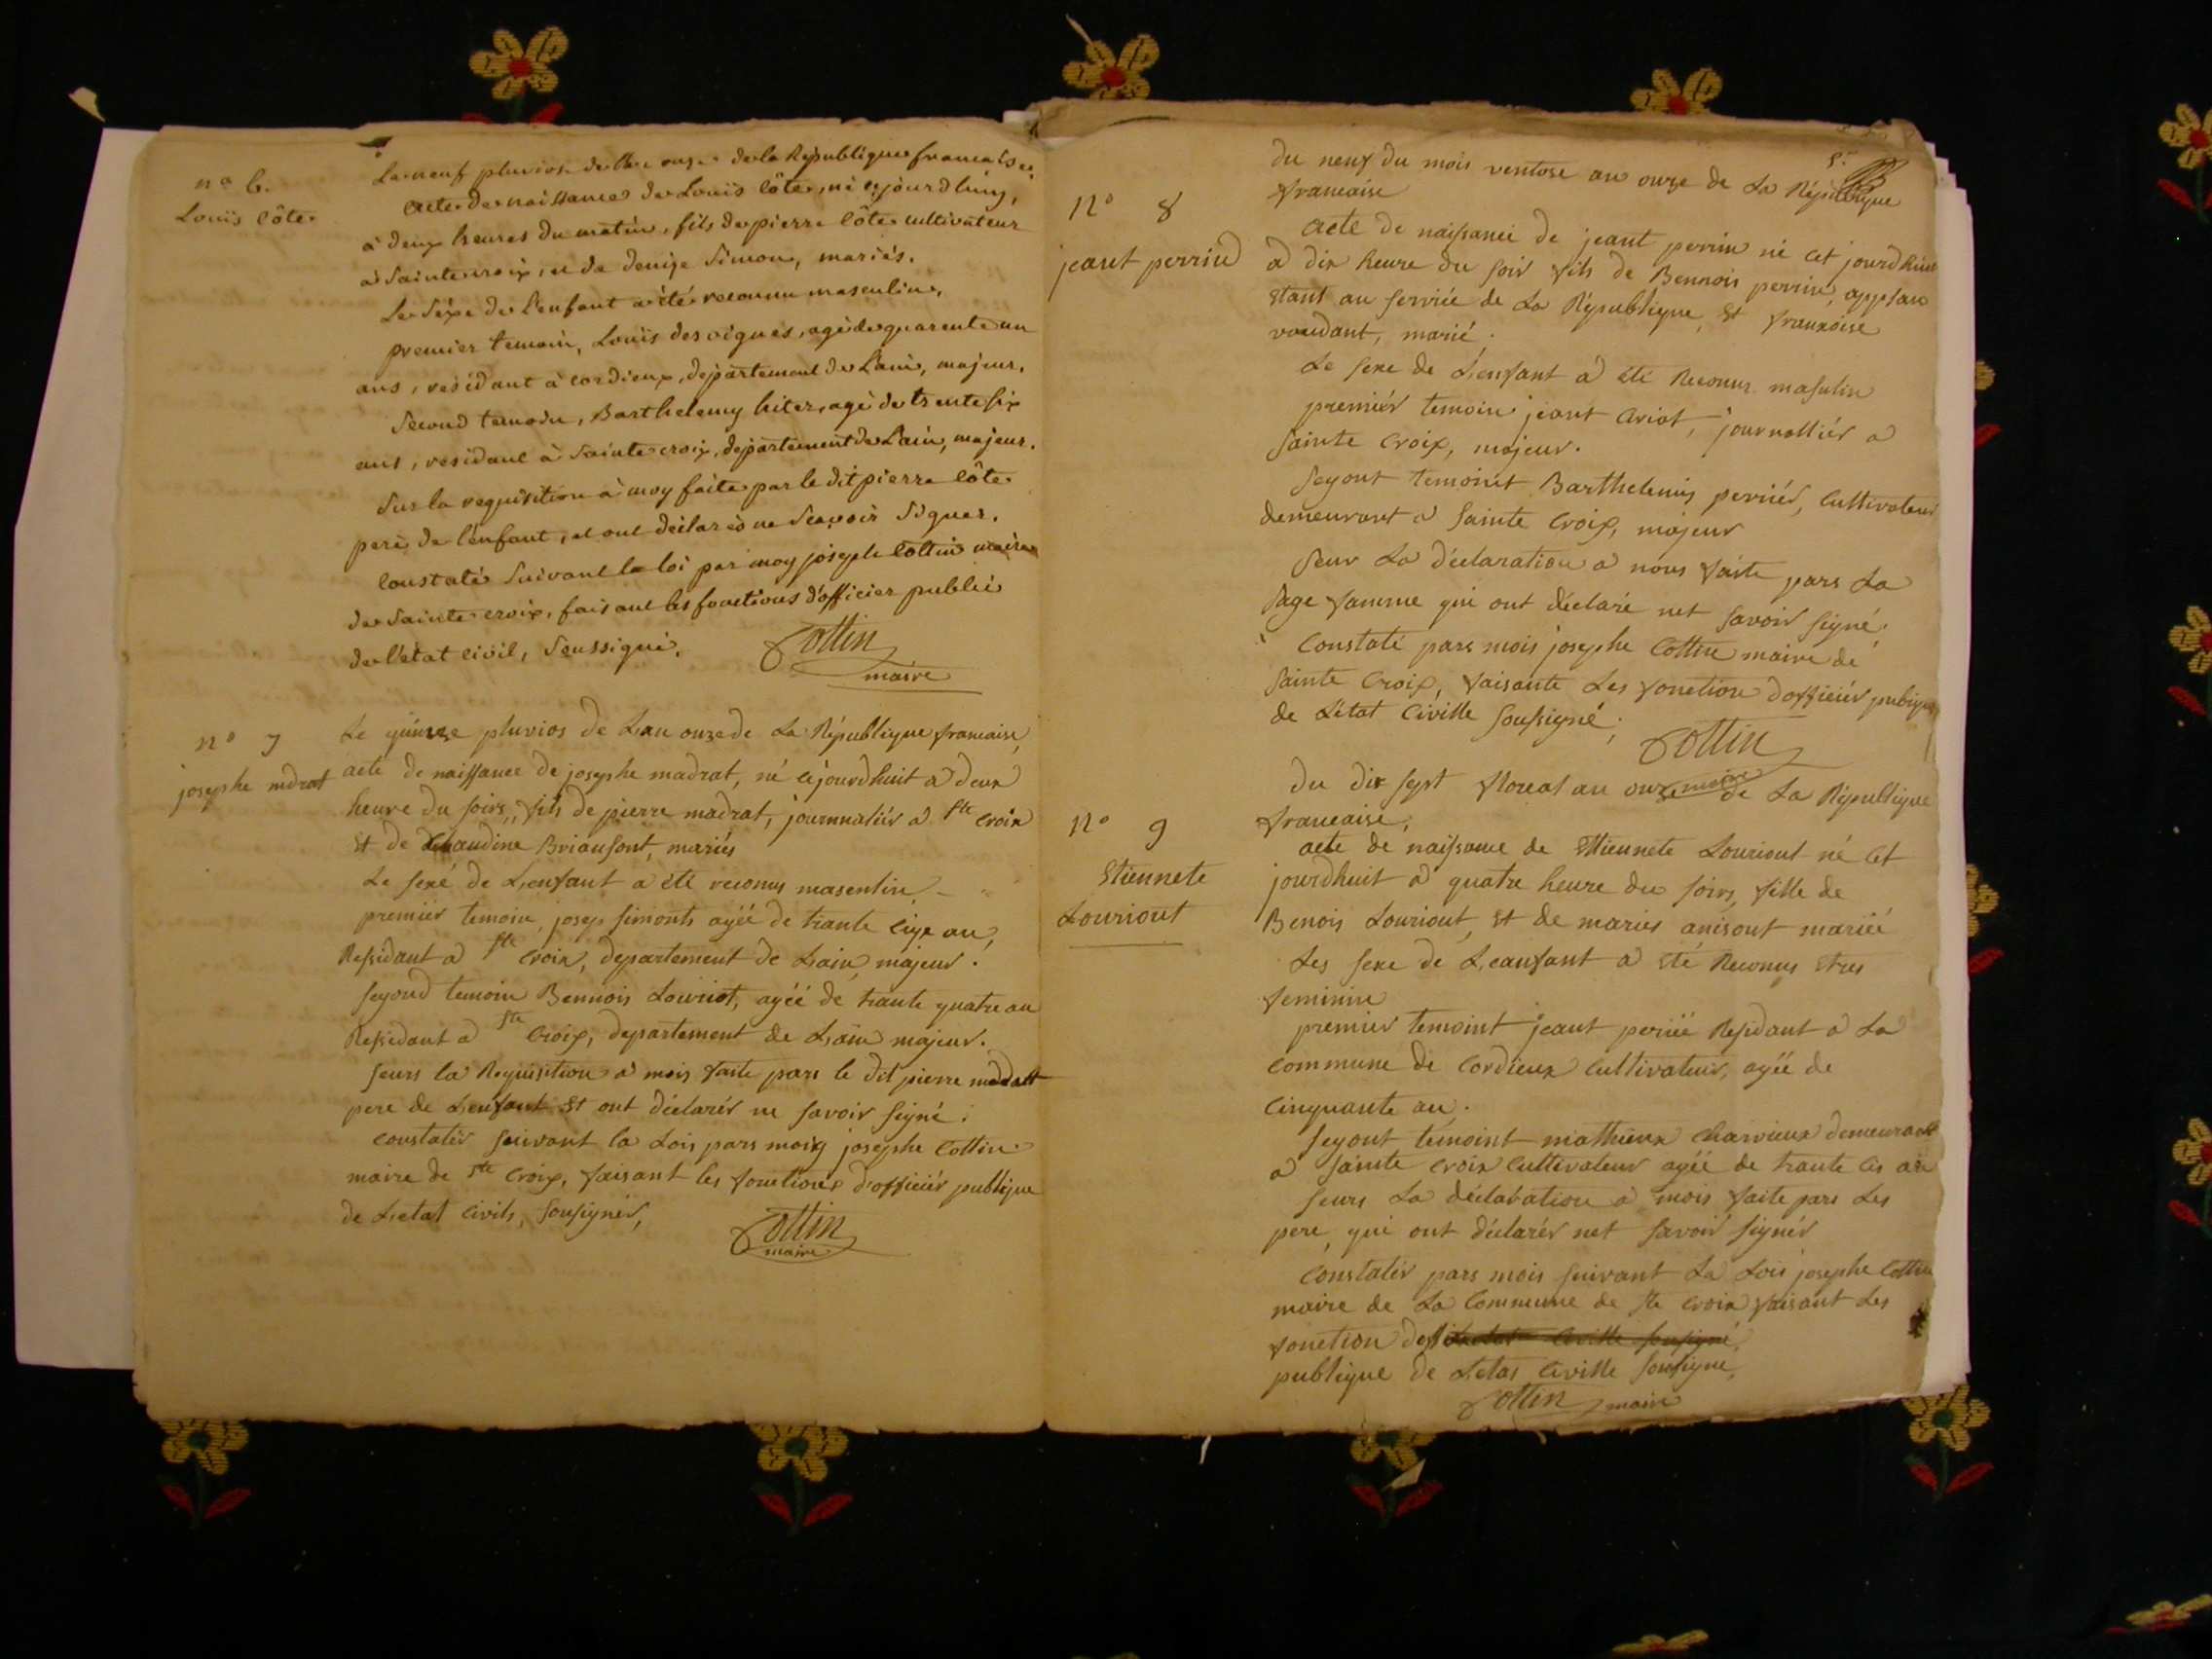 n° 6.
Louis Côte
Le neuf pluviose de l'an onze de la République francaise,
acte de naissance de Louis Côte, né cejourdhuy,
à deux heures du matin, fils de pierre Côte cultivateur
à Sainte croix, et de denize Simon, mariés.
Le Séxe de l'enfant a été reconnu masculin,
premier temoin, Louis des vignes, agé de quarente un
ans, résidant à cordieux, département de L'ain, majeur.
Second temoin, Barthelemy hiter, agé de trente six
ans, résidant à Sainte croix, département de L'ain, majeur.
Sur la requisition à moy faite par le dit pierre Côte
pere de l'enfant, et ont déclarés ne Scavoir Signer.
Constaté Suivant la loi par moy joseph Cottin maire
de Sainte croix, faisant les fonctions d'officier public
de l'état civil, Soussigné.
Cottin
maire
n° 7
josephe mdrat
Le quinze pluvios de Lan onze de La République francaise,
acte de naissance de josephe madrat, né cejourdhuit a deux
heure du soirs, fils de pierre madrat, journnaliér a Ste Croix
Et de Claudine Briansont, mariés
Le sexé de L'enfant a été reconus masculin
premiér temoin, josep simonts agéé de trante cixe an,
Residant a Ste Croix, departement de Lain majeur.
segond temoin Bennois Louriot, agéé de trante quatre an
Residant a Ste Croix, departement de Lain majeur.
seurs la Requisition a mois faite pars le dit pierre madratt
pere de L'enfant Et ont déclarér ne savoir signé.
constatér suivant la Lois pars moiy josephe Cottin
maire de Ste Croix, faisant les fonctions d'officiér publique
de L'etat Civils, sousignér,
Cottin
maire
N° 8
jeant perrin
du neuf du mois ventose an onze de La République
francaise
acte de naissance de jeant perrin né cet jourdhuit
a dix heure du soir fils de Bennois perrin,
Etant au servicé de La République, Et francoise
vaudant, marié.
Le sexe de L'enfant a été Reconus masulin
premiér temoin jeant Criot, journalliér a
sainte Croix, majeur.
segont temoint Barthelemis perriér, Cultivateur
demeurant a Sainte Croix, majeur
seur La déclaration a nous faite pars La
sage famme qui ont déclaré net savoir signé.
Constaté pars mois josephe Cottin maire de
sainte Croix, faisante Les fonction d'officiér publique
de L'état Civille sousigné;
Cottin
maire
N° 9
Etiennete
Louriout
du dix sept floreal an onze de La République
francaise,
acte de naissance de Ettiennete Louriout né Cet
jourdhuit a quatre heure du soirs, fille de
Benois Louriout, Et de maries anisont mariéé
Les sexe de L'eanfant a été Reconus Etres
feminin
premier temoint jeant periéé Residant a La
commune de Cordieux Cultivateur, agéé de
Cinquante an.
segont temoint mathieux Charvieux demeurant
a sainte Croix Cultivateur agéé de trante Cis an
seurs La déclaration a mois faite pars Les
pere, qui ont déclarér net savoir signér
Constatér pars mois suivant La Lois josephe Cottin
maire de La Commune de Ste Croix faisant Les
fonction
publique de L'etas Civille sousigne,
Cottin maire